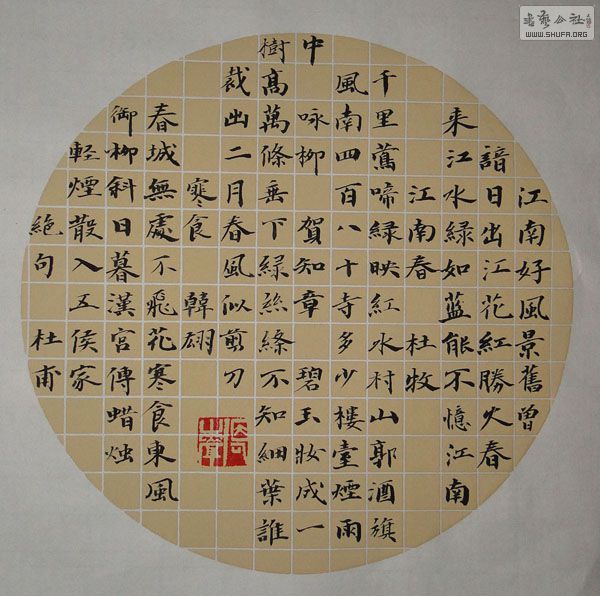 江南好風景舊曾
諳日出江花紅勝火春
来江水綠如藍能不憶江南
江南春 杜牧
千里鶯啼綠映紅水村山郭酒旗
風南四百八十寺多少樓臺煙雨
中 咏柳 賀知章 碧玉妝成一
樹高萬條垂下綠絲絛不知細葉誰
裁出二月春風似剪刀
寒食 韓翃
春城無處不飛花寒食東風
御柳斜日暮漢宮傳蜡烛
輕煙散入五侯家
絕句 杜甫
書藝公社
WWW.SHUFA.ORG